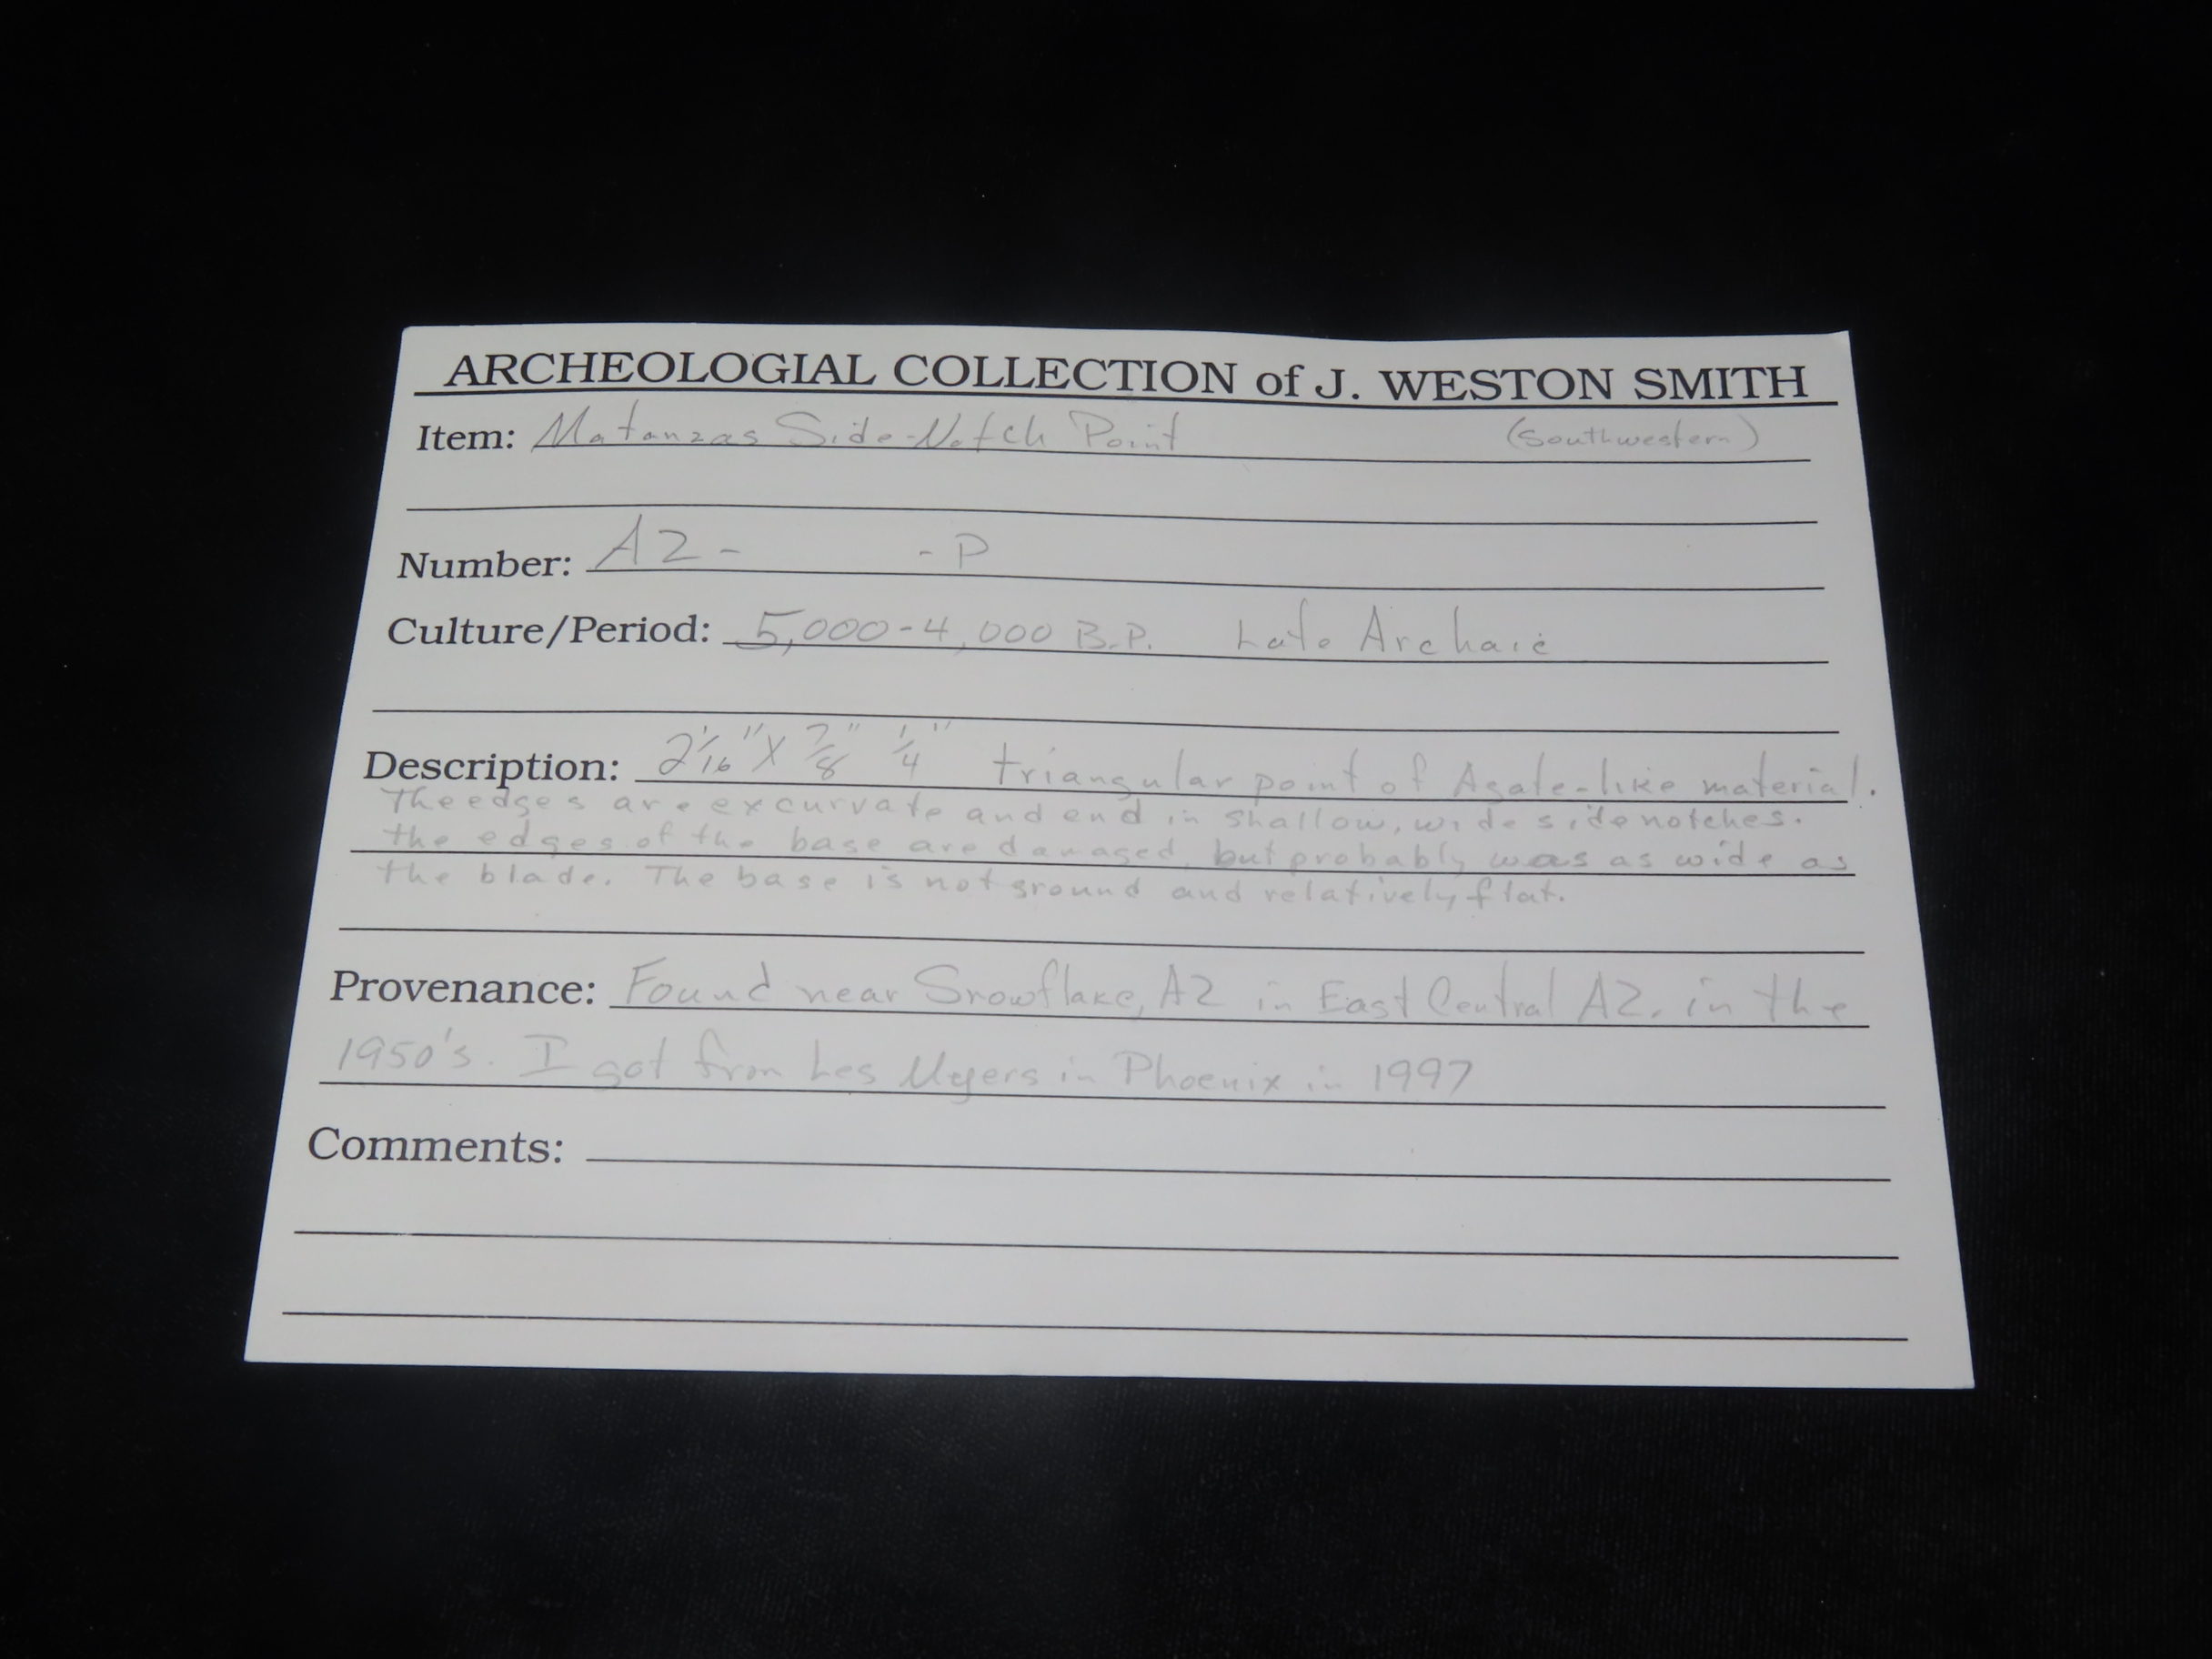 ARCHEOLOGIAL COLLECTION of J. WESTON SMITH
Item: Matanzas Side-Notch Point (Southwestern)
Number: AZ - - P
Culture/Period: 5,000-4,000 B.P. Late Archaic
Description: 2 1/16" X 7/8" 1/4" triangular point of Agate-like material.
The edges are excurvate and end in shallow, wide side notches.
the edges of the base are damaged, but probably was as wide as
the blade. The base is not ground and relatively flat.
Provenance: Found near Snowflake, AZ in East Central AZ. in the
1950's. I got from Les Myers in Phoenix in 1997
Comments: